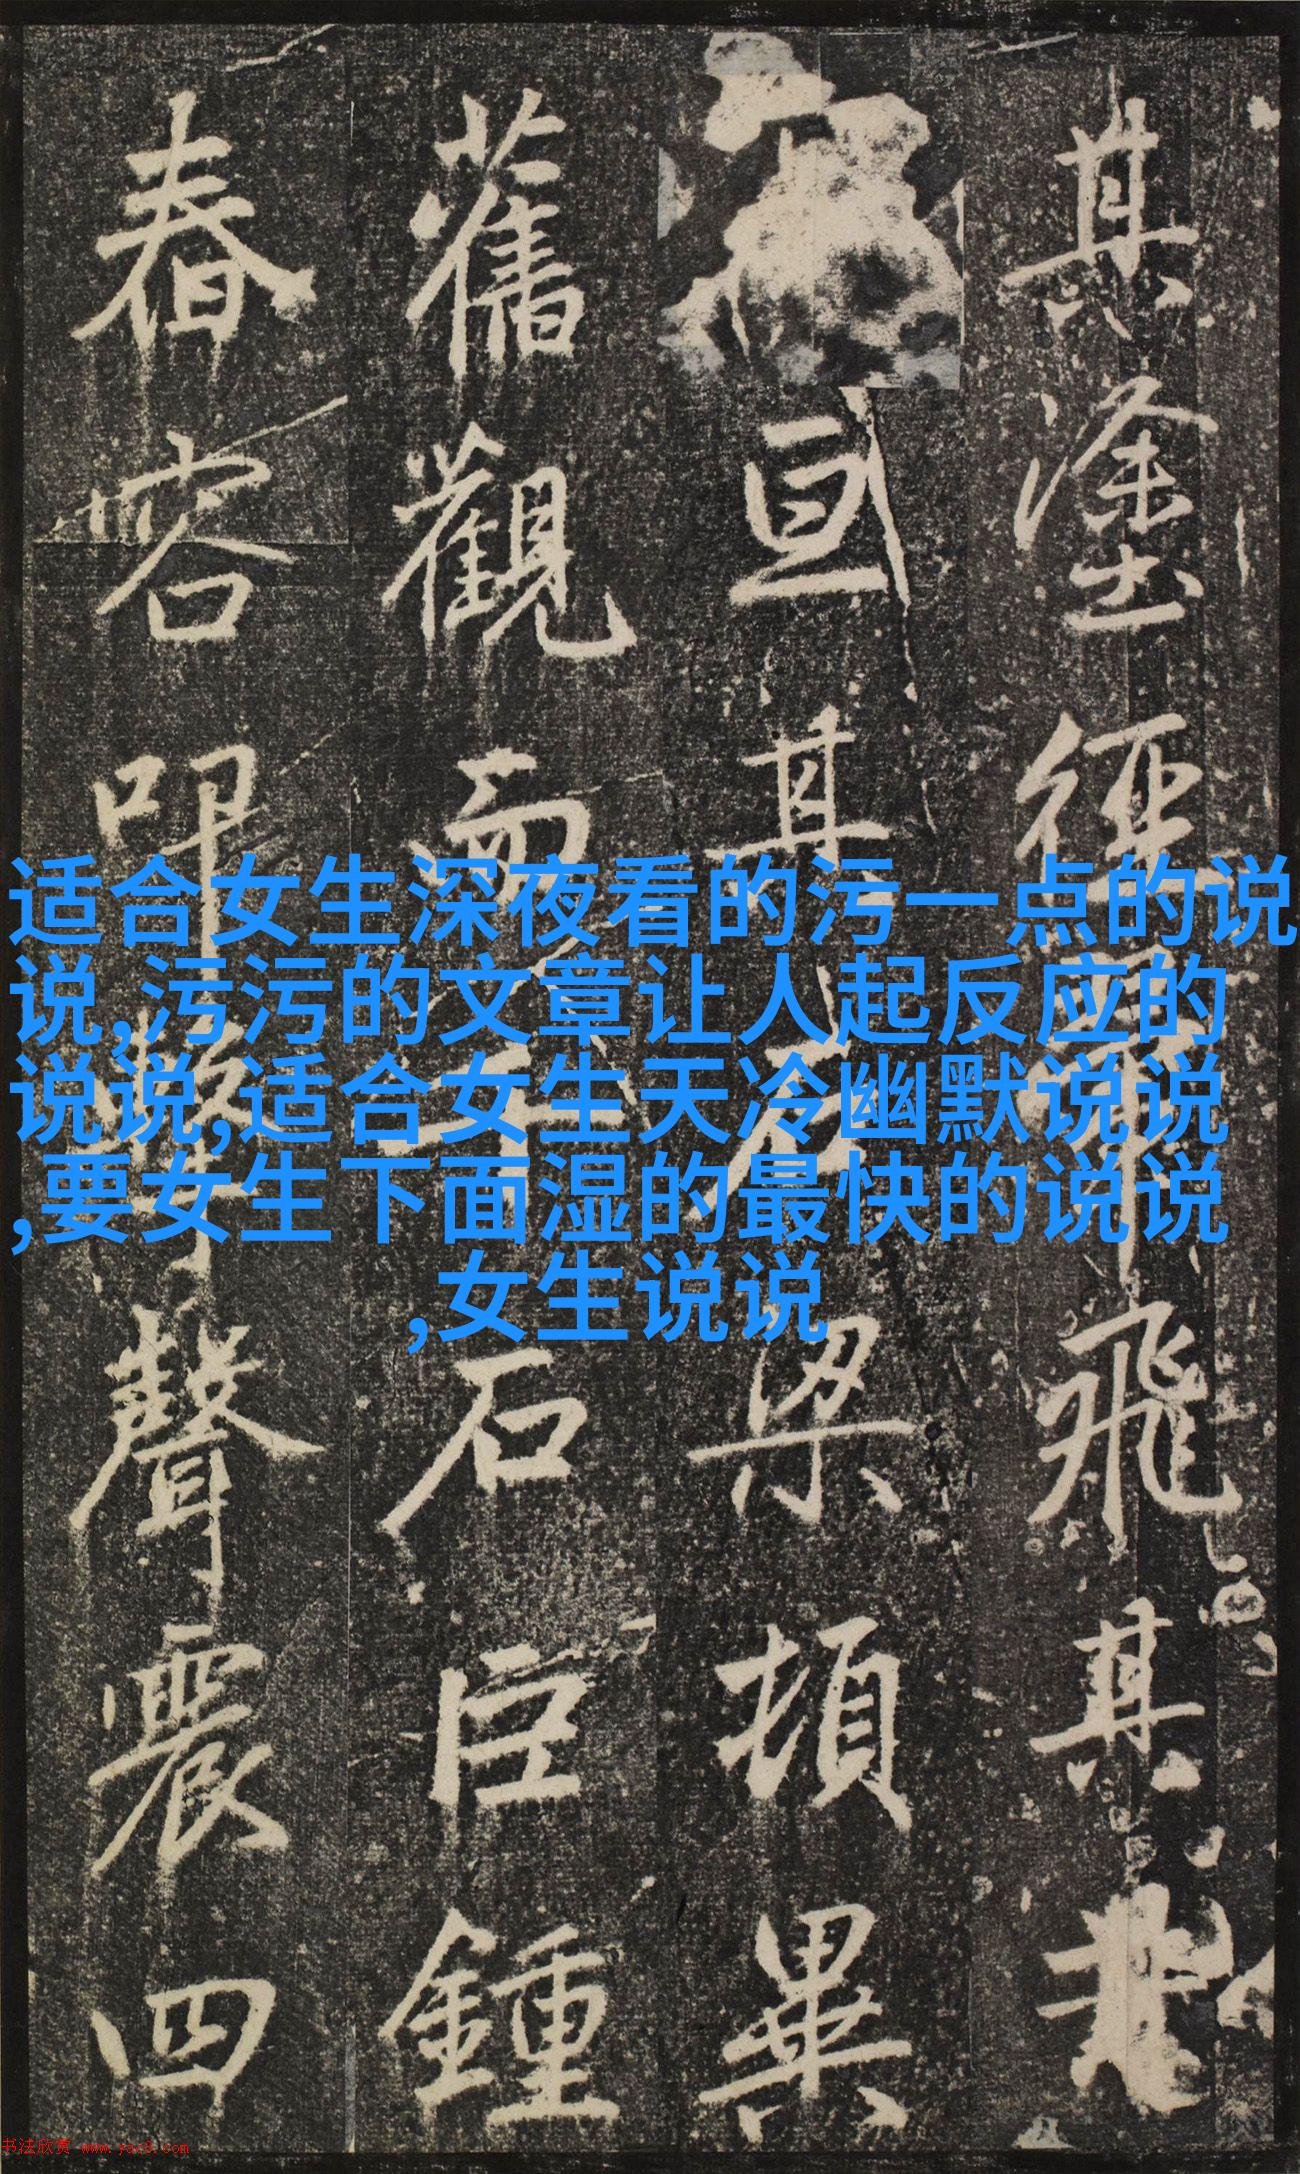 其塗經耳飛其
亘其月梁頓異
舊觀而石巨鍾
春容叩聲震四
适合女生深夜看的污一点的说
说,污污的文章让人起反应的
说说,适合女生天冷幽默说说
,要女生下面湿的最快的说说
,女生说说
书法欣赏 www.yac8.com